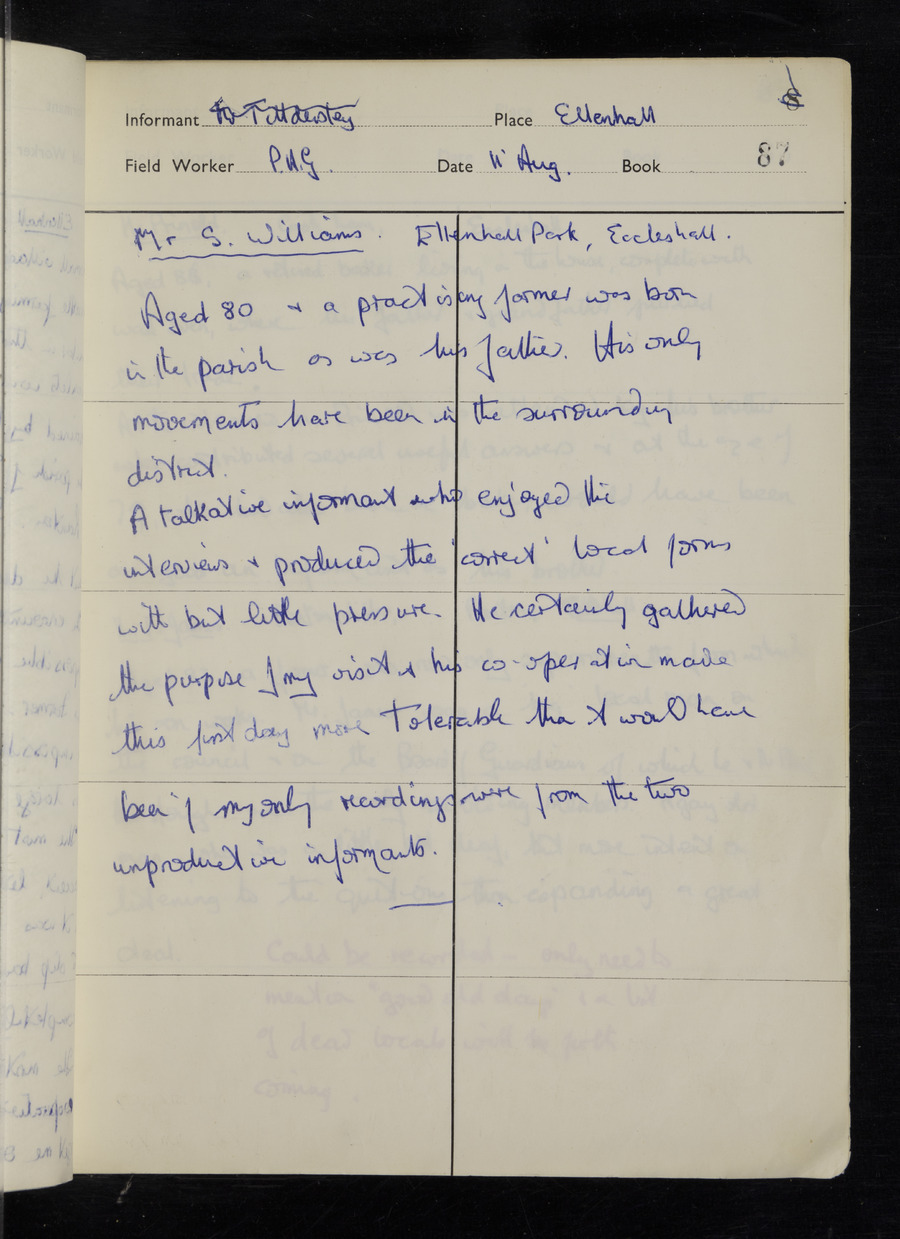 Informant Mr Titterstey Place Ellenhall
Field Worker P.H.G. Date 11 Aug. Book 87
Mr S. Williams. Ellenhall Park, Eccleshall.
Aged 80 + a practising farmer was born
in the parish as was his father. His only
movements have been in the surrounding
district.
A talkative informant who enjoyed the
interview + produced the 'correct' local forms
with but little pressure. He certainly gathered
the purpose of my visit + his co-operation made
this first day more tolerable than it would have
been if my only recordings were from the two
unproductive informants.